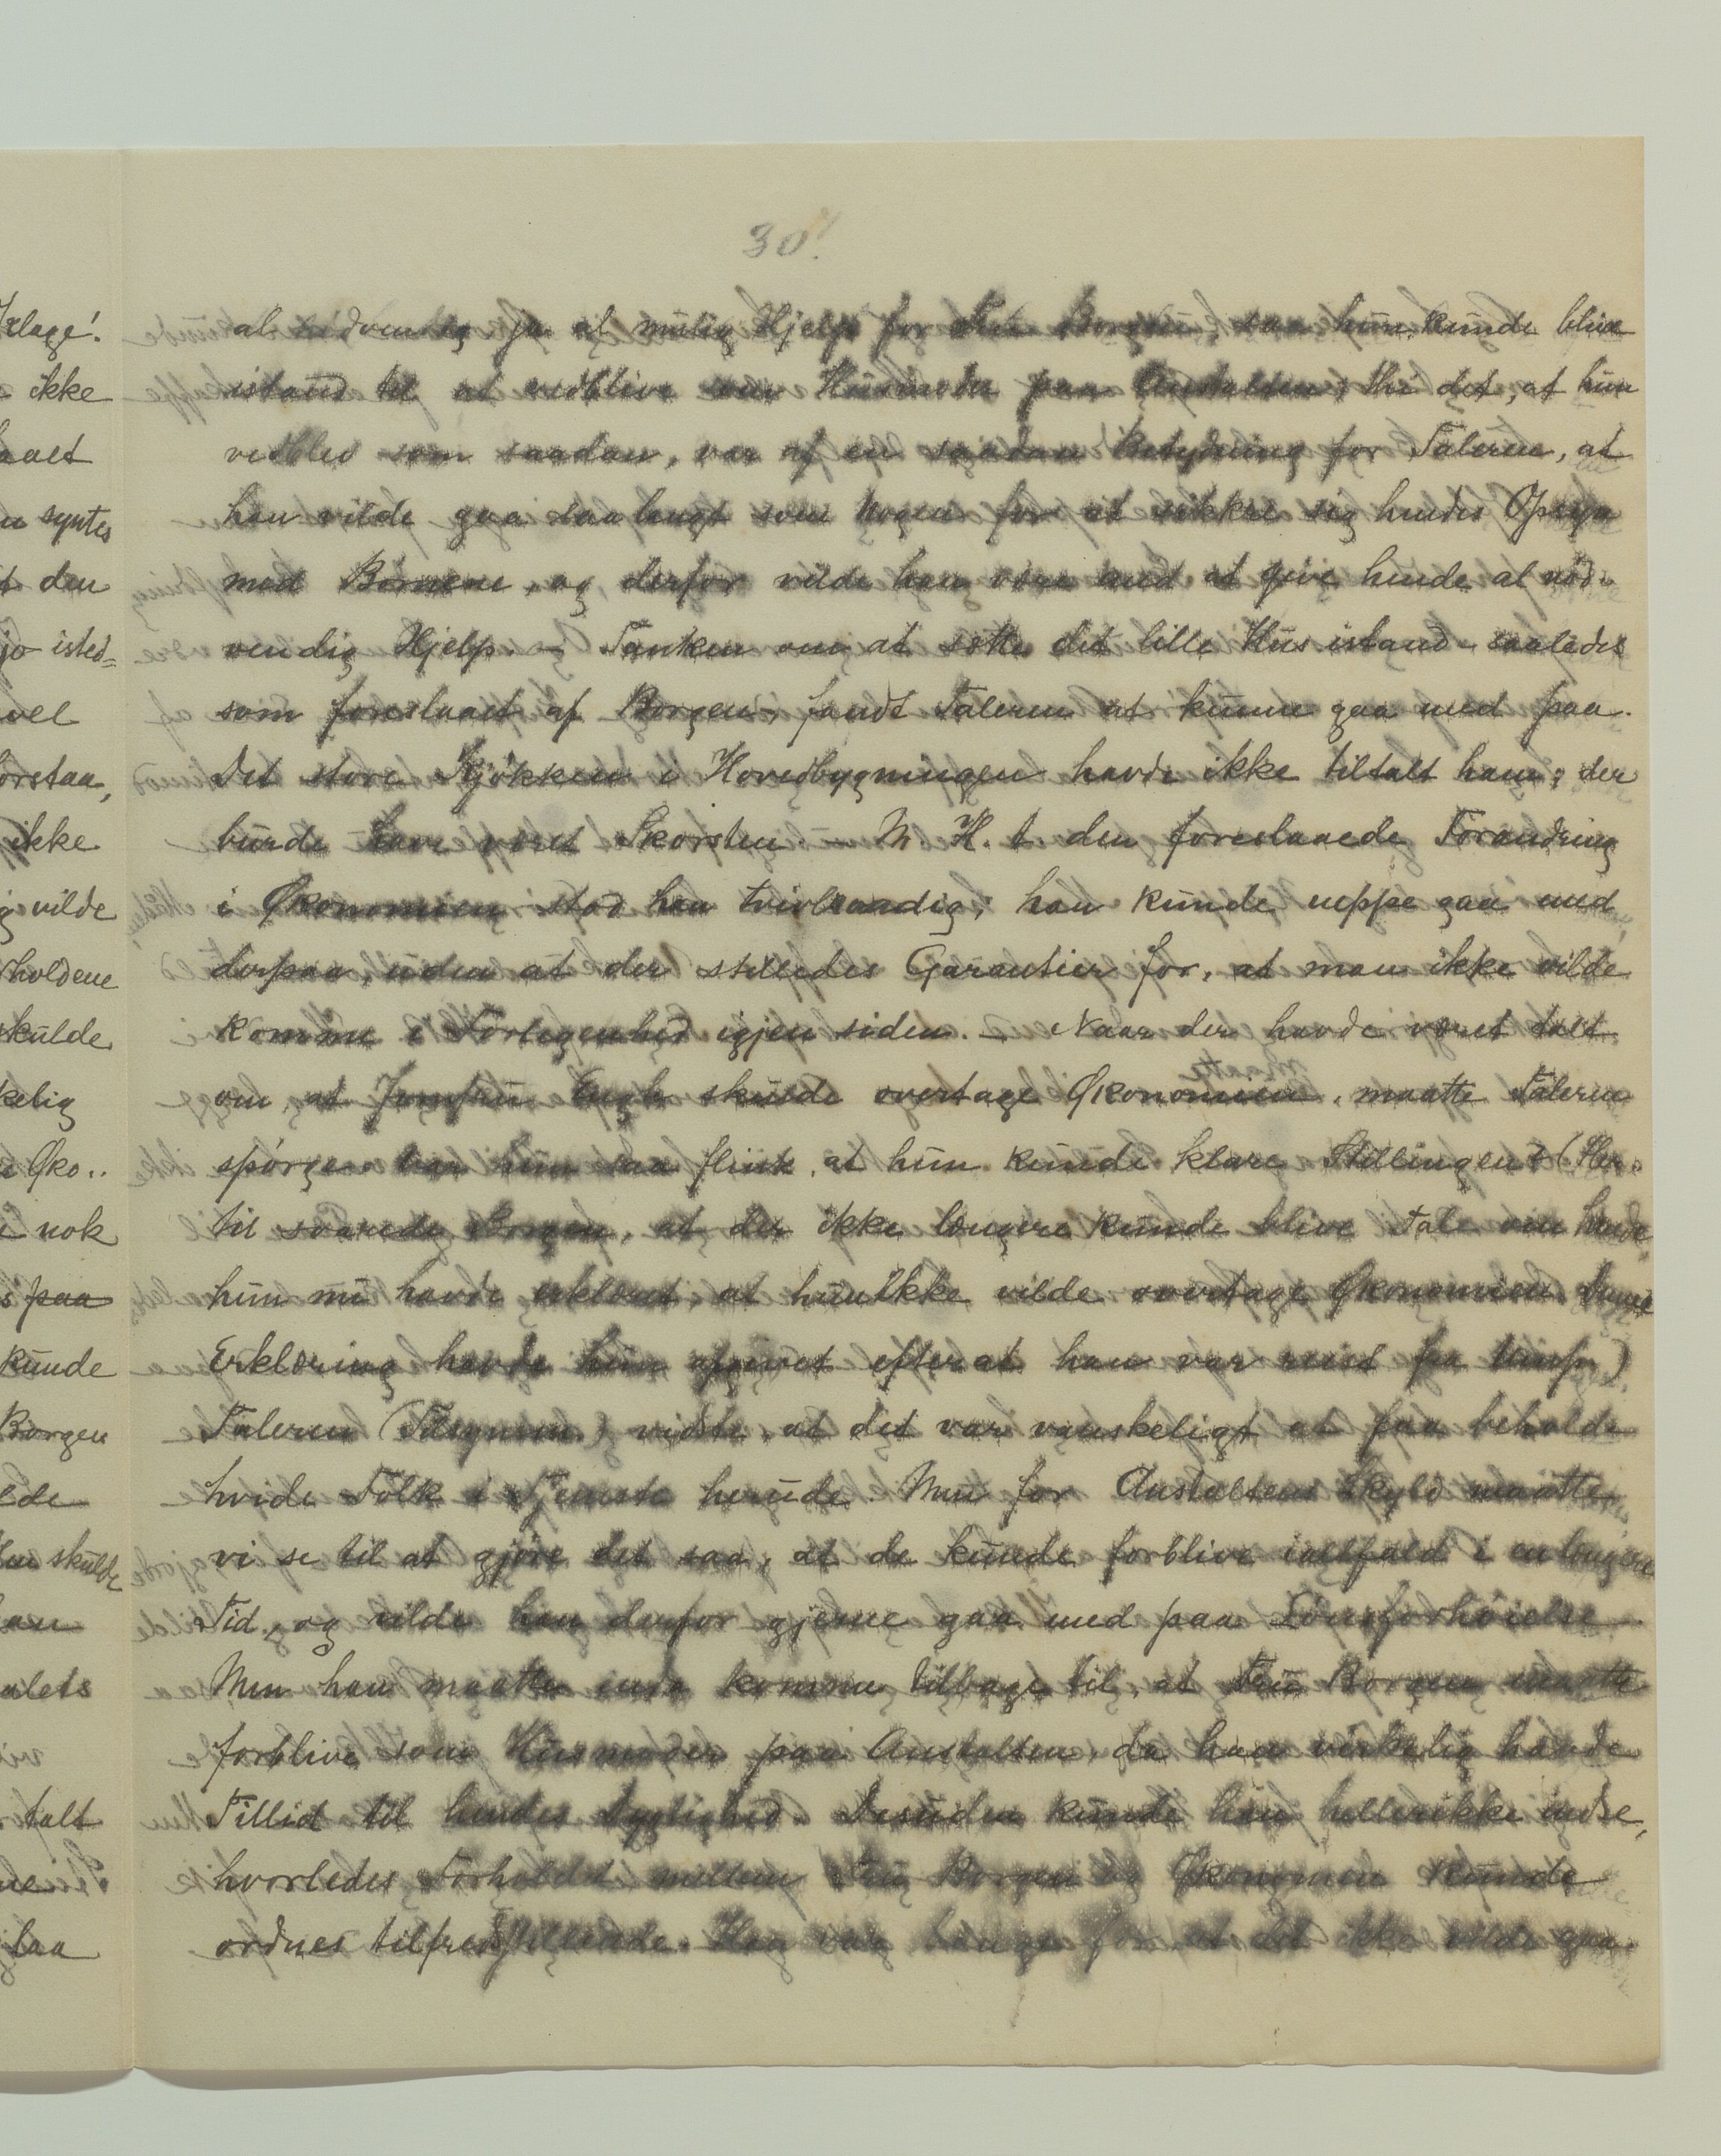 30!
al nødvendig ja al mulig Hjelp for Fru Borgen, saa hun kunde blive
istand til at vedblive som Husmoder paa Anstalten; thi det, at hun
vedblev som saadan, var af en saadan Betydning for Taleren, at
han vilde gaa saa langt som nogen for at sikkre sig hendes Opsyn
med Børnene, og derfor vilde han være med at give hende al nød-
vendig Hjelp. – Tanken om at sætte det lille Hus istand – saaledes
som foreslaaet af Borgen, fandt Taleren at kunne gaa med paa.
Det store Kjøkken i Hovedbygningen havde ikke tiltalt ham; der
burde have været Skorsten. – M. H. t. den foreslaaede Forandring
i Økonomien stod han tvivlraadig; han kunde neppe gaa med
derpaa, uden at der stilledes Garantier for, at man ikke vilde
komme i Forlegenhed igjen siden. – Naar der havde været talt
om, at Jomfru skulde overtage Økonomien, maatte Taleren
spørge: var hun saa flink, at hun kunde klare Stillingen? (Her-
til svarede Borgen, at der ikke længere kunde blive Tale om hende
hun nu havde erklæret, at hun ikke vilde overtage Økonomien. Denne
Erklæring havde hun afgivet efterat han var reist fra )
Taleren (Tilsynsm.) vidste, at det var vanskeligt at faa beholde
hvide Folk i Tjeneste herude. Men for Anstaltens Skyld maatte
vi se til at gjøre det saa, at de kunde forblive ialfald i en længere
Tid, og vilde han derfor gjerne gaa med paa Lønsforhøielse.
Men han maatte endo komme tilbage til, at Fru Borgen maatte
forblive som Husmoder paa Anstalten, da han virkelig havde
Tillid til hendes Dygtighed. Desuden kunde han hellerikke indse,
hvorledes Forholdet mellem Fru Borgen og Økonomen kunde
ordnes tilfredsstillende. Han var bange for, at det ikke vilde gaa